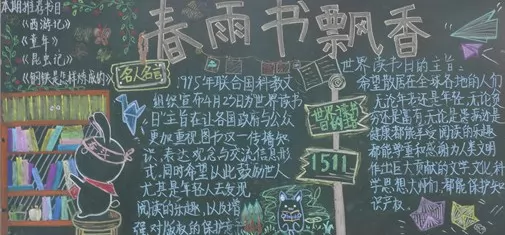 本期推荐书目
《西游记》
《童年》
《昆虫记》
《钢铁是怎样炼成的》
春雨书飘香
名人名言
1995年联合国科教文
组织宣布4月23日为世界读书
日"主旨在让各国政府与公众
更加重视图书这一传播知
识、表达观念与交流信息形
式,同时希望以此鼓励人
尤其是年轻人去发现
阅读的乐趣,以及增
强对版权的保护意
世界读书
日的主旨
1511
世界读书日的主旨:
希望散居在全球各地的人们
无论年老还是年轻,无论贫
穷还是富有,无论是患病还是
健康都能享受阅读的乐趣
都能尊重和感谢为人类文明
作出巨大贡献的文学,文化,科
学思想大师们,都能保护知
识产权